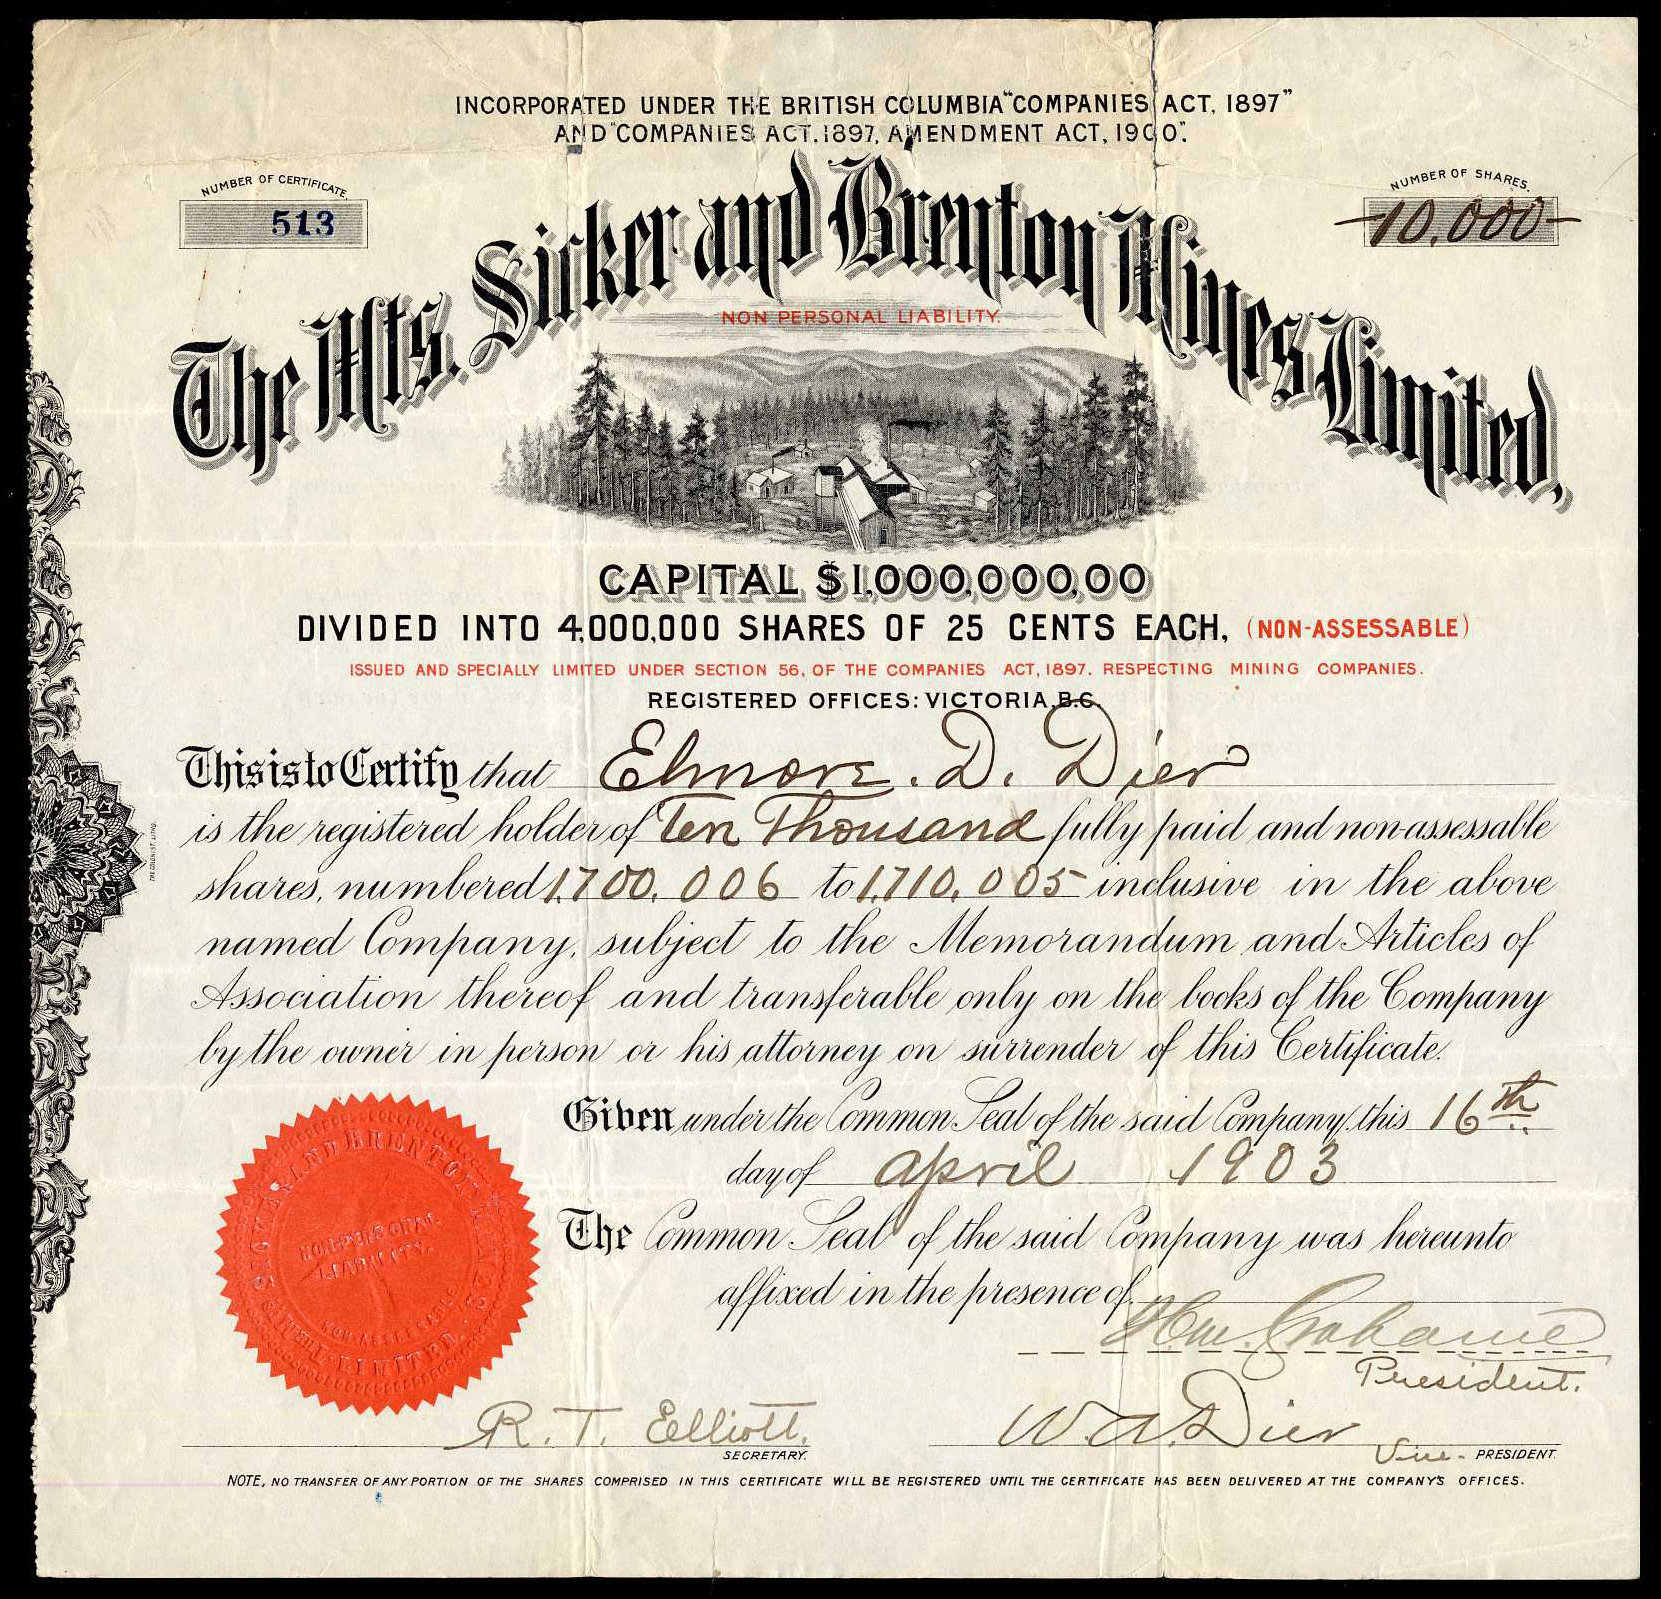 INCORPORATED UNDER THE BRITISH COLUMBIA "COMPANIES ACT, 1897"
AND "COMPANIES ACT, 1897, AMENDMENT ACT, 1900".
NUMBER OF CERTIFICATE.
513
NUMBER OF SHARES.
10,000
The Mts. Sicker and Brenton Mines Limited,
NON PERSONAL LIABILITY.
CAPITAL $1,000,000,00
DIVIDED INTO 4,000,000 SHARES OF 25 CENTS EACH, (NON-ASSESSABLE)
ISSUED AND SPECIALLY LIMITED UNDER SECTION 56, OF THE COMPANIES ACT, 1897. RESPECTING MINING COMPANIES.
REGISTERED OFFICES: VICTORIA, B.C.
This is to Certify that Elmore. D. Dier
is the registered holder of Ten Thousand fully paid and non-assessable
shares, numbered 1,700,006 to 1,710,005 inclusive in the above
named Company, subject to the Memorandum and Articles of
Association thereof and transferable only on the books of the Company
by the owner in person or his attorney on surrender of this Certificate.
Given under the Common Seal of the said Company this 16th
day of April 1903
The Common Seal of the said Company was hereunto
affixed in the presence of
Wm. Grahame
President.
R. T. Elliott.
SECRETARY.
W. A. Dier
Vice- PRESIDENT.
NOTE, NO TRANSFER OF ANY PORTION OF THE SHARES COMPRISED IN THIS CERTIFICATE WILL BE REGISTERED UNTIL THE CERTIFICATE HAS BEEN DELIVERED AT THE COMPANY'S OFFICES.
THE COLONIST LITHO.
AND BRENTON
NON-PERSONAL
LIABILITY.
NON ASSESSABLE
LIMITED